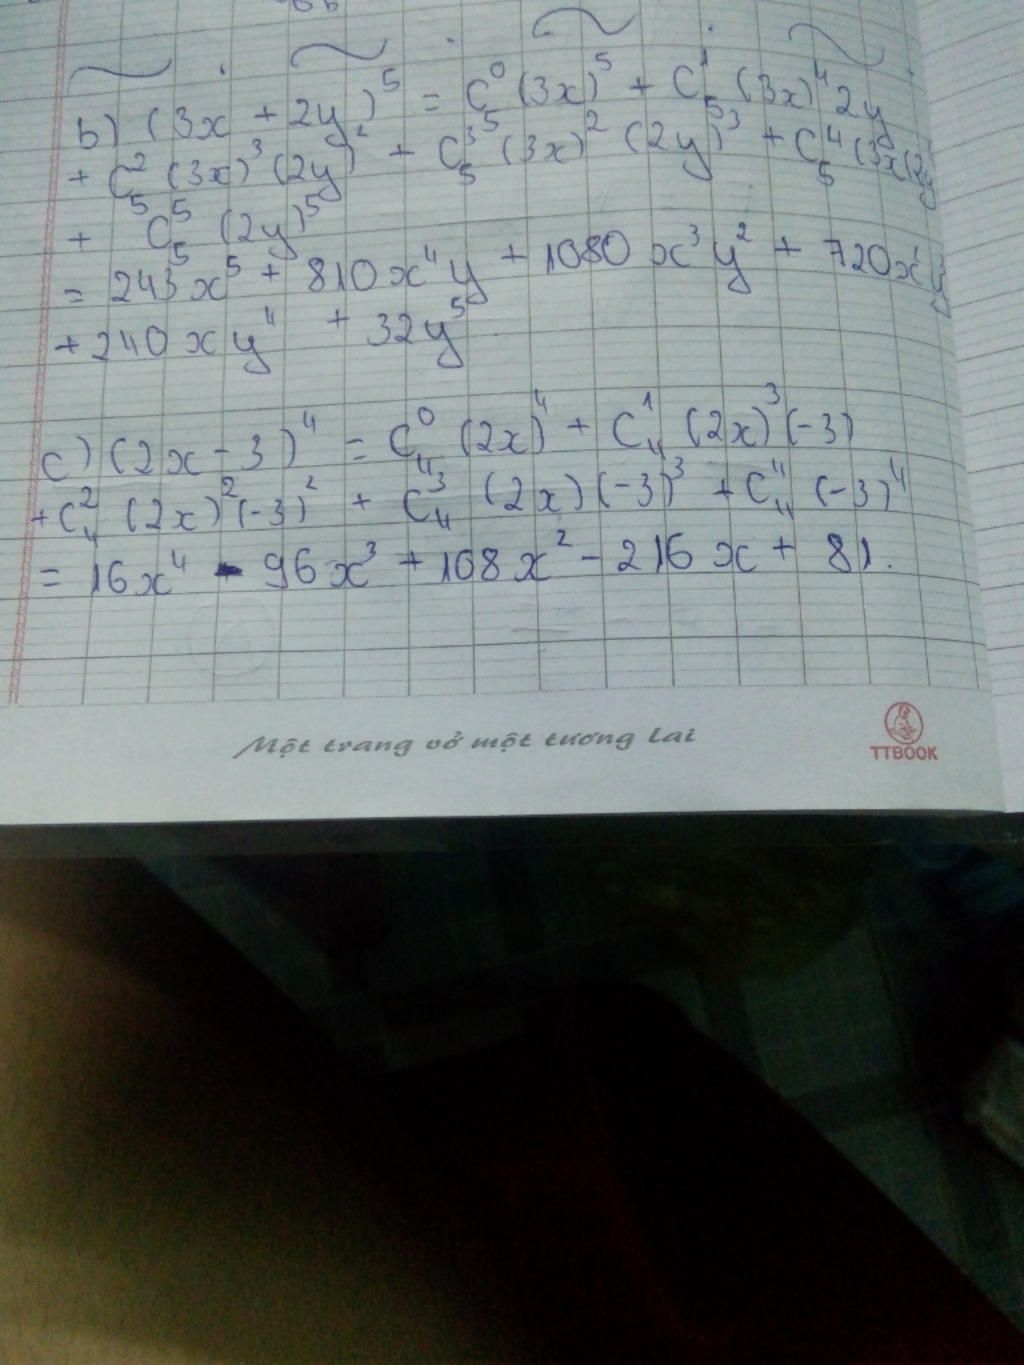 b) (3x + 2y)⁵ = C₅⁰ (3x)⁵ + C₅¹ (3x)⁴ 2y
+ C₅² (3x)³ (2y)² + C₅³ (3x)² (2y)³ + C₅⁴ (3x(2y
+ C₅⁵ (2y)⁵
= 243x⁵ + 810x⁴y + 1080x³y² + 720x²y³
+ 240xy⁴ + 32y⁵
c) (2x - 3)⁴ = C₄⁰ (2x)⁴ + C₄¹ (2x)³ (-3)
+ C₄² (2x)² (-3)² + C₄³ (2x) (-3)³ + C₄⁴ (-3)⁴
= 16x⁴ - 96x³ + 108x² - 216x + 81.
Một trang vở một tương lai
TTBOOK